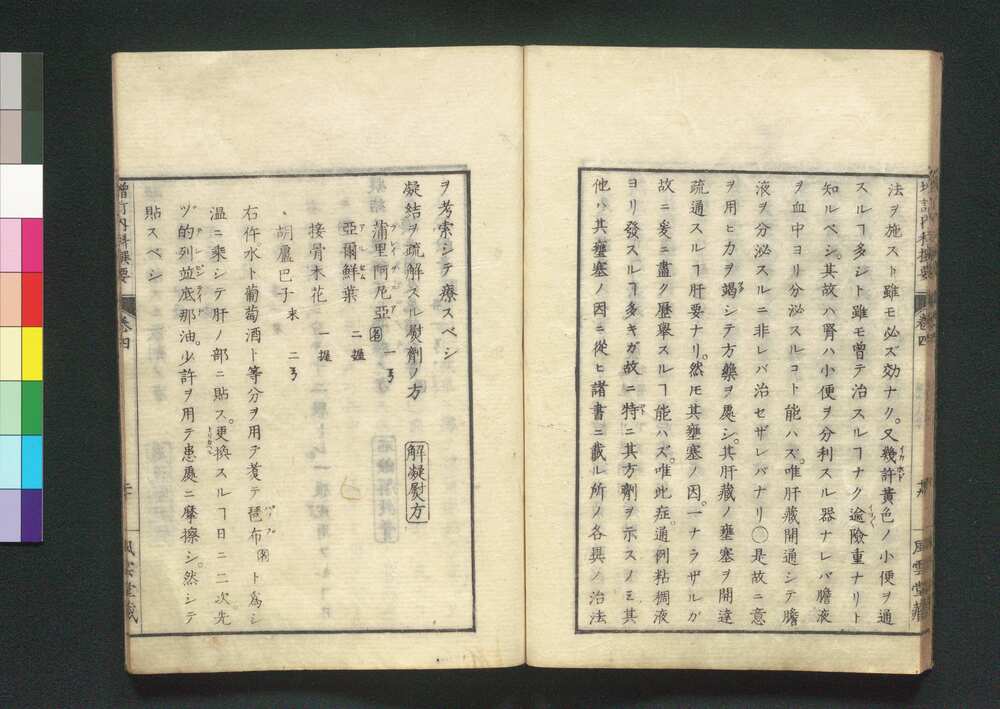 法ヲ施スト雖モ必ズ効ナク。又幾許黄色ノ小便ヲ通
スルヿ多シト雖モ曽テ治スルヿナク逾險重ナリト
知ルベシ。其故ハ腎ハ小便ヲ分利スル器ナレバ膽液
ヲ血中ヨリ分泌スルコト能ハズ。唯肝藏開通シテ膽
液ヲ分泌スルニ非レバ治セザレバナリ○是故ニ意
ヲ用ヒカヲ竭シテ方藥ヲ處シ。其肝藏ノ壅塞ヲ開達
疏通スルヿ肝要ナリ。然𪜈其壅塞ノ因。一ナラザルガ
故ニ爰ニ盡ク歷舉スルヿ能ハズ。唯此症。通例粘稠液
ヨリ發スルヿ多キガ故ニ特ニ其方劑ヲ示スノミ其
他ハ其壅塞ノ因ニ從ヒ諸書ニ載ル所ノ各具ノ治法
増訂内科撰要 卷四 風雲堂藏
ヲ考索シテ療スベシ
凝結ヲ疏解スル熨劑ノ方 解凝熨方
蒲里阿尼亞 名 一ヲ
亞爾鮮葉 二握
接骨木花 一握
胡蘆巴子 末 二ヲ
右件水ト葡萄酒ト等分ヲ用テ煑テ琶布 名 ト爲シ
溫ニ乘シテ肝ノ部ニ貼ス。更換スルヿ日ニ二次。先
ヅ的列並底那油。少許ヲ用テ患處ニ摩擦シ。然シテ
貼スベシ
増訂内科撰要 卷四 二十 風雲堂藏